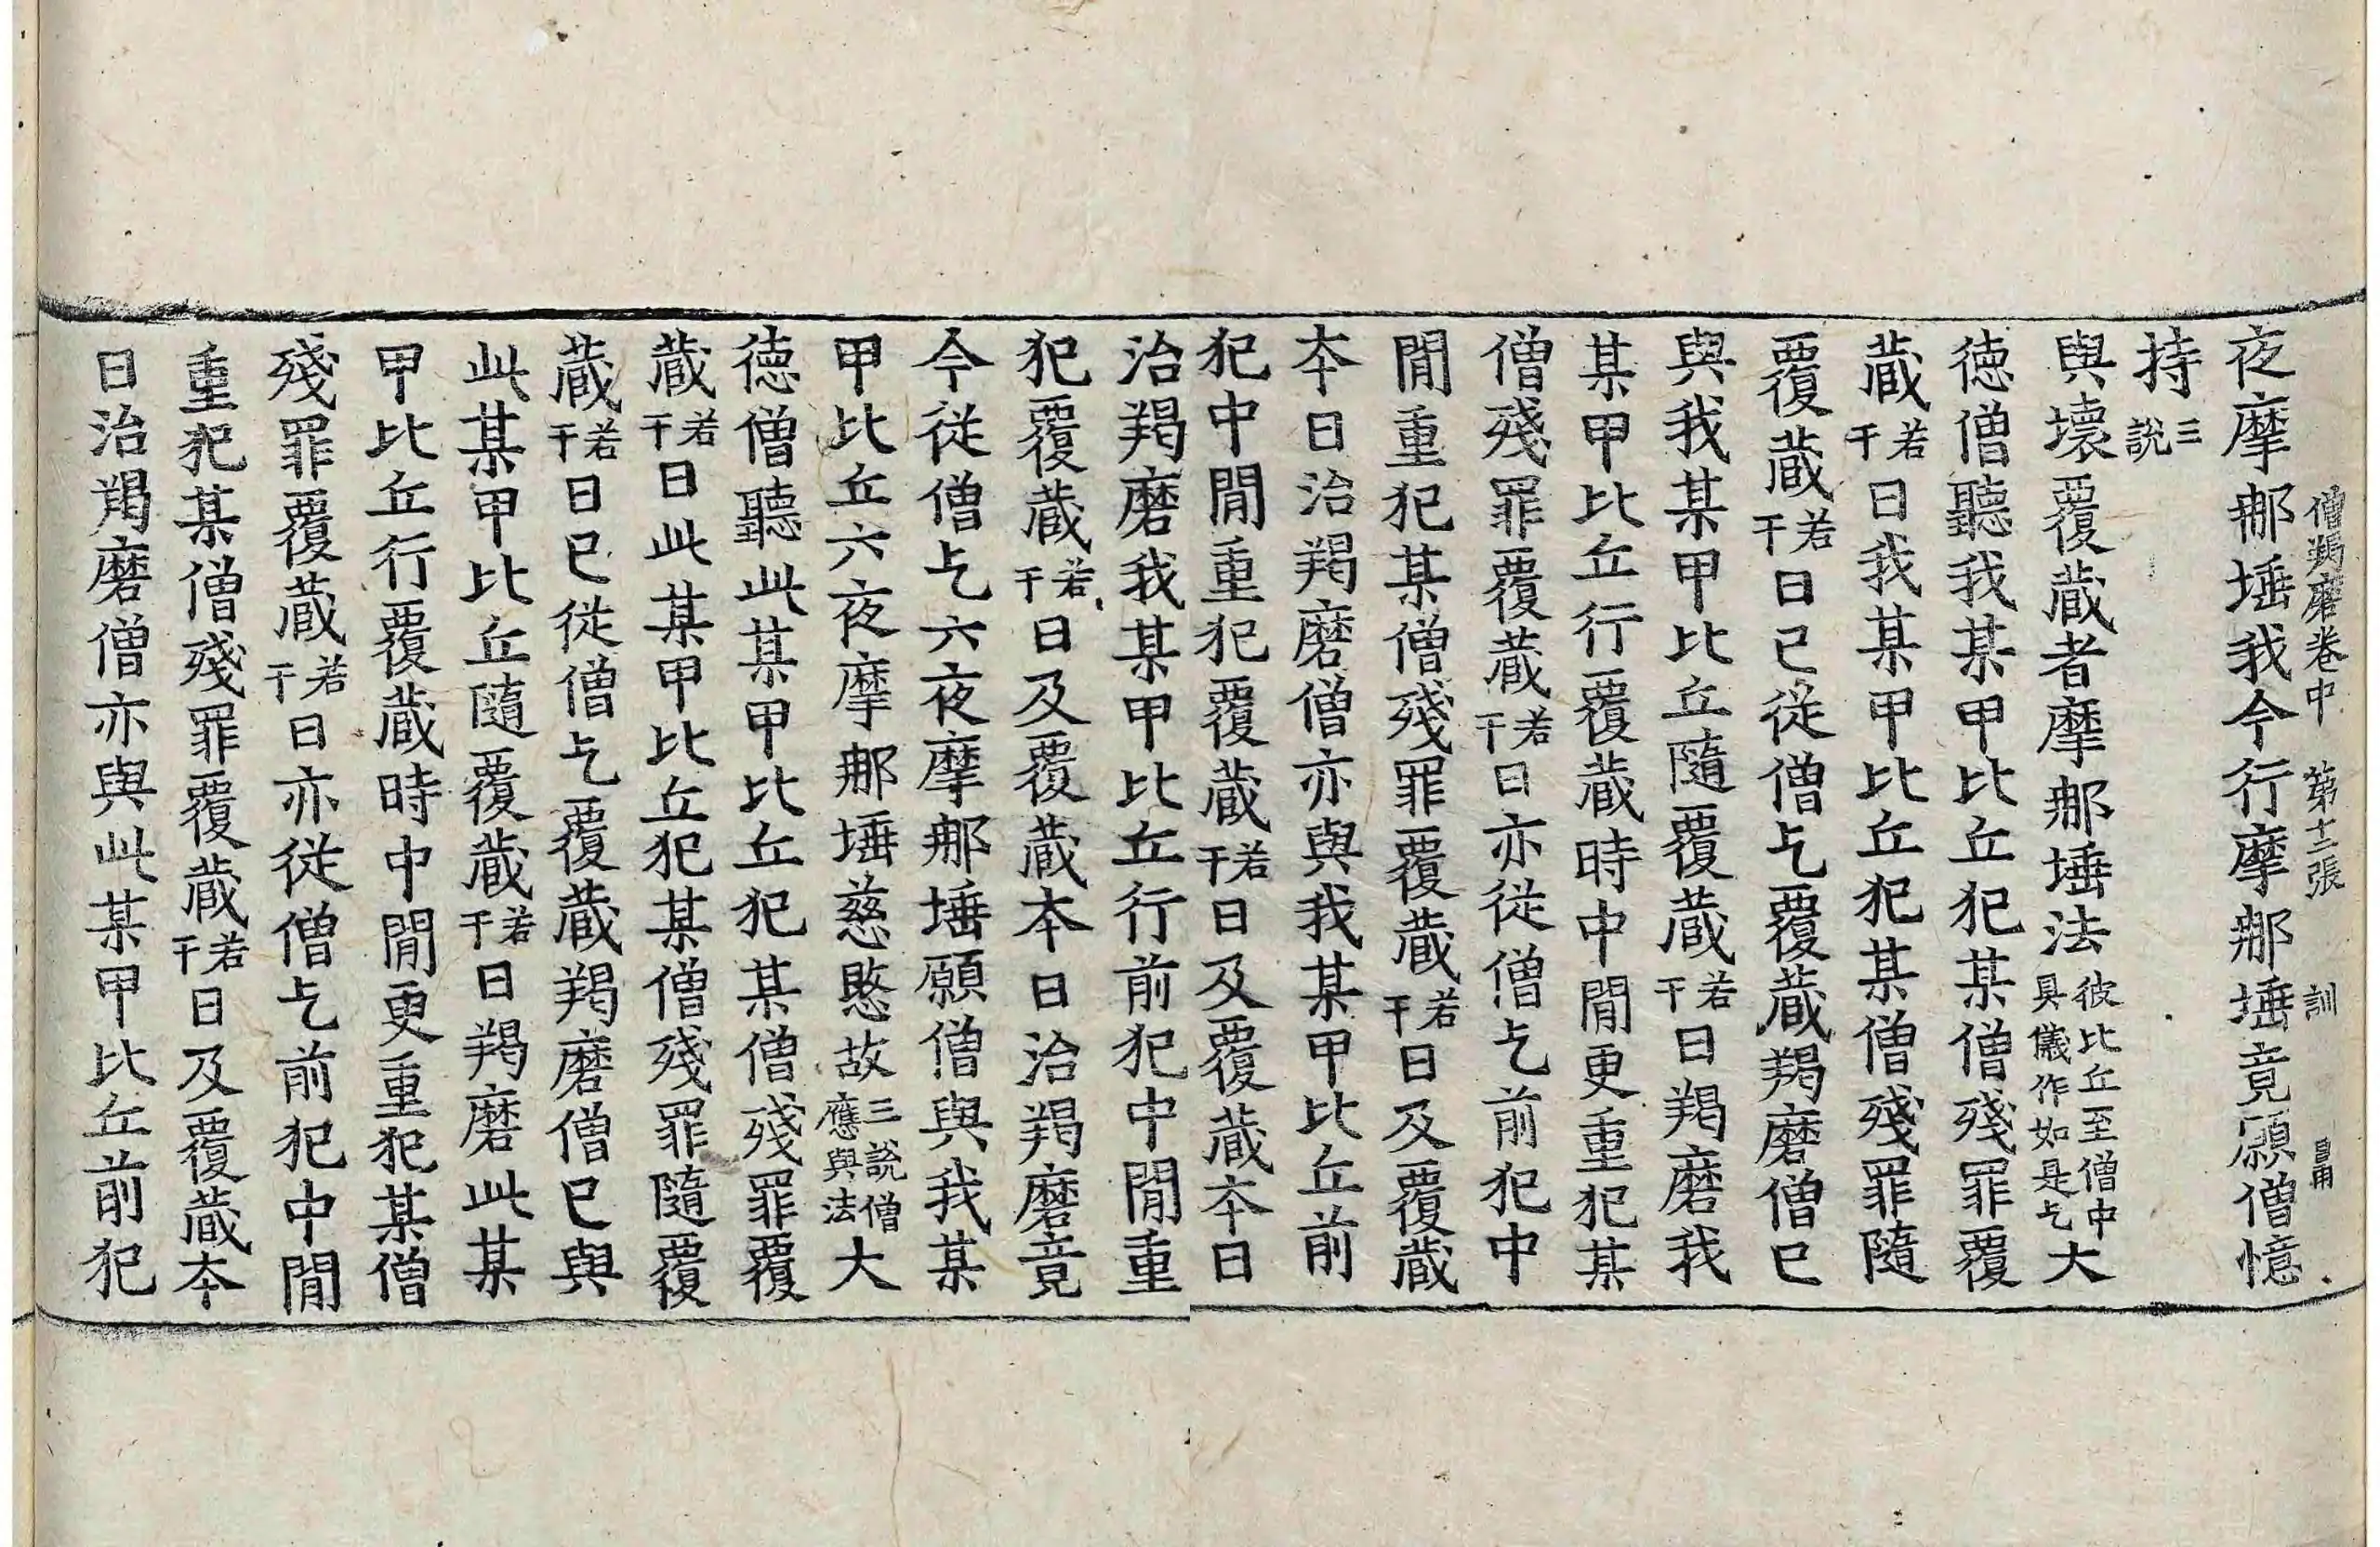 僧羯磨卷中 第十三張 訓 昌甫
夜摩那埵我今行摩那埵竟願僧憶
持三說
與壞覆蔵者摩那埵法彼比丘至僧中具儀作如是乞大
德僧聽我某甲比丘犯某僧殘罪覆
蔵若干日我某甲比丘犯某僧殘罪隨
覆蔵若干日已從僧乞覆蔵羯磨僧已
與我某甲比丘隨覆蔵若干日羯磨我
某甲比丘行覆蔵時中閒更重犯某
僧殘罪覆蔵若干日亦從僧乞前犯中
閒重犯某僧殘罪覆蔵若干日及覆蔵
夲日治羯磨僧亦與我某甲比丘前
犯中閒重犯覆蔵若干日及覆蔵夲日
治羯磨我某甲比丘行前犯中閒重
犯覆蔵若干日及覆蔵夲日治羯磨竟
今從僧乞六夜摩那埵願僧與我某
甲比丘六夜摩那埵慈愍故三說僧應與法大
德僧聽此某甲比丘犯某僧殘罪覆
蔵若干日此某甲比丘犯某僧殘罪隨覆
蔵若干日已從僧乞覆蔵羯磨僧已與
此某甲比丘隨覆蔵若干日羯磨此某
甲比丘行覆蔵時中閒更重犯某僧
殘罪覆蔵若干日亦從僧乞前犯中閒
重犯某僧殘罪覆蔵若干日及覆蔵夲
日治羯磨僧亦與此某甲比丘前犯